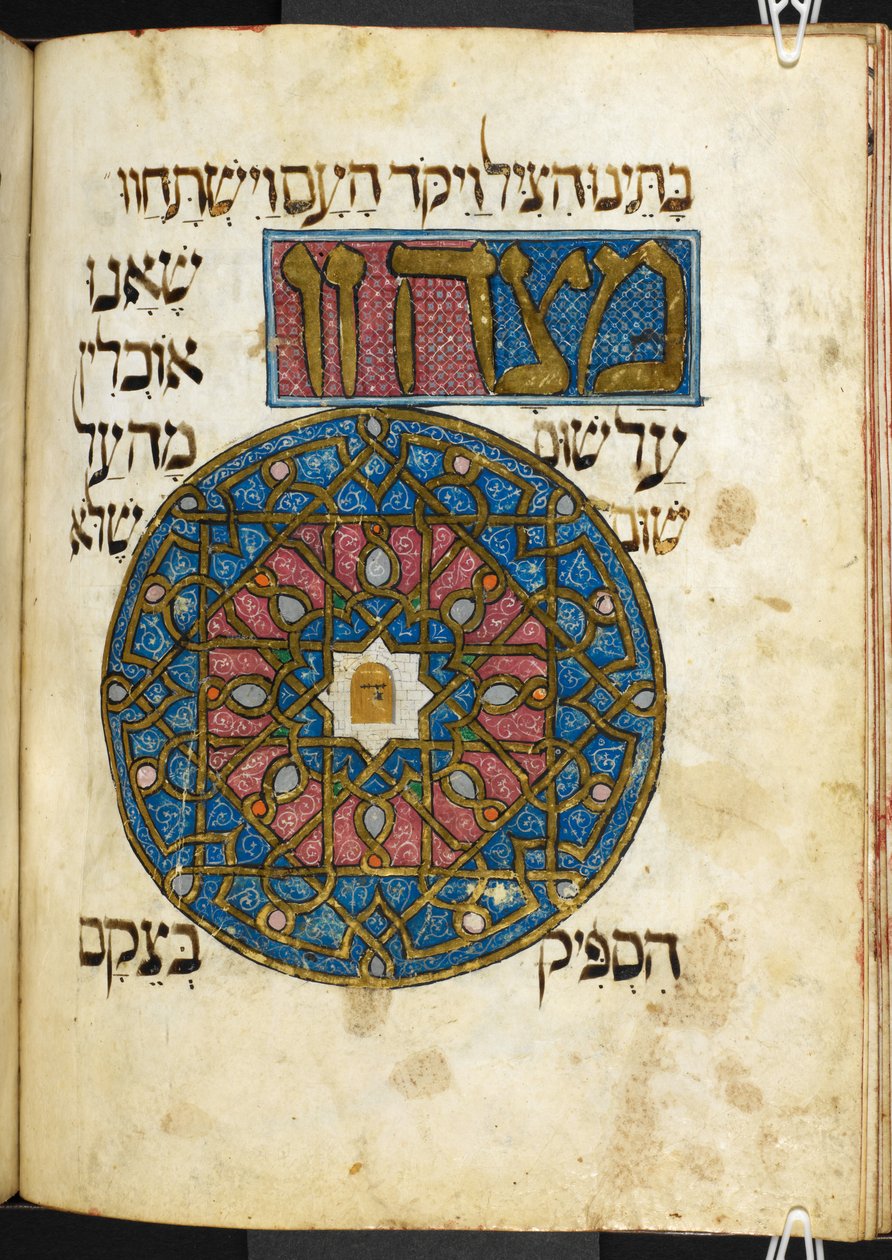 בָּתֵּינוּ הִצִּיל וַיִּקֹּד הָעָם וַיִּשְׁתַּחֲווּ
מצה זו שֶׁאָנוּ
אוֹכְלִין
עַל שׁוּם מַה עַל
שׁוּם שֶׁלֹּא
הִסְפִּיק בְּצֵקָם